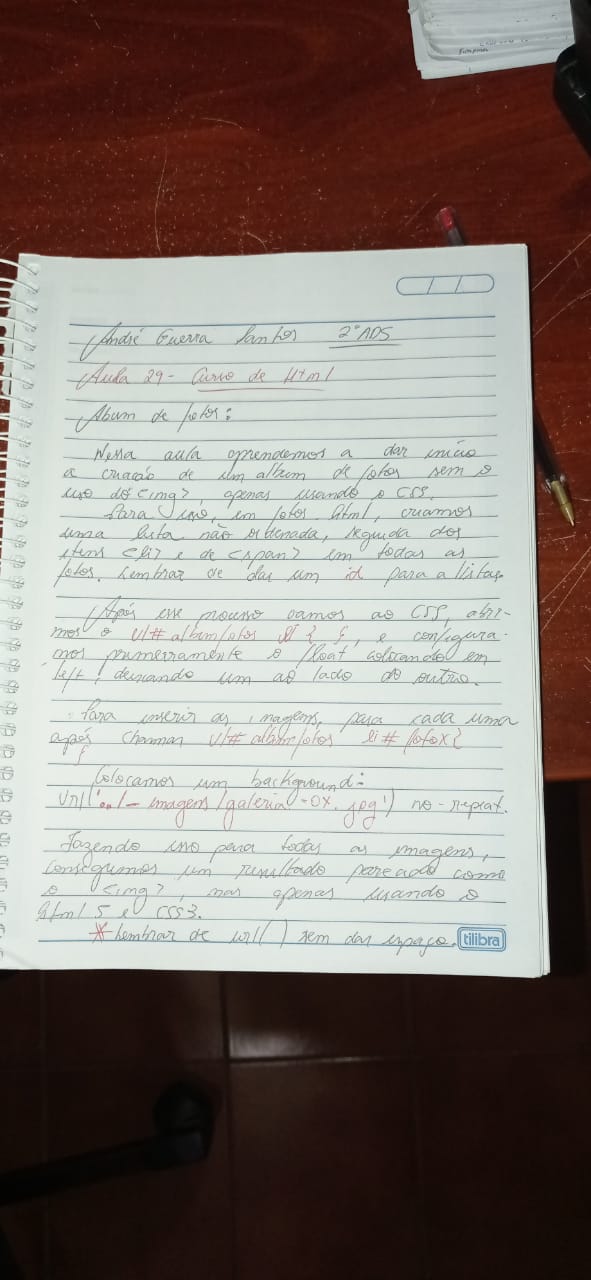 André Guerra Santos 2º ADS
Aula 29 - Curso de Html
Album de fotos:
Nessa aula aprendemos a dar início
a criação de um album de fotos sem o
uso do <img>, apenas usando o CSS.
Para isso, em fotos html, criamos
uma lista não ordenada, seguida dos
itens <li> e de <span> em todas as
fotos. Lembrar de dar um id para a lista.
Após esse processo vamos ao CSS, abri-
mos o ul# albumfotos li { }, e configura-
mos primeiramente o float colocando em
left, deixando um ao lado do outro.
Para inserir as imagens, para cada uma
após chamar ul# albumfotos li# fotoX{
}
Colocamos um background:
url('../_imagens/galeria-0X.jpg') no-repeat.
Fazendo isso para todas as imagens,
conseguimos um resultado pareado como
o <img>, mas apenas usando o
Html 5 e CSS3.
* Lembrar de url( ) sem dar espaço.
tilibra